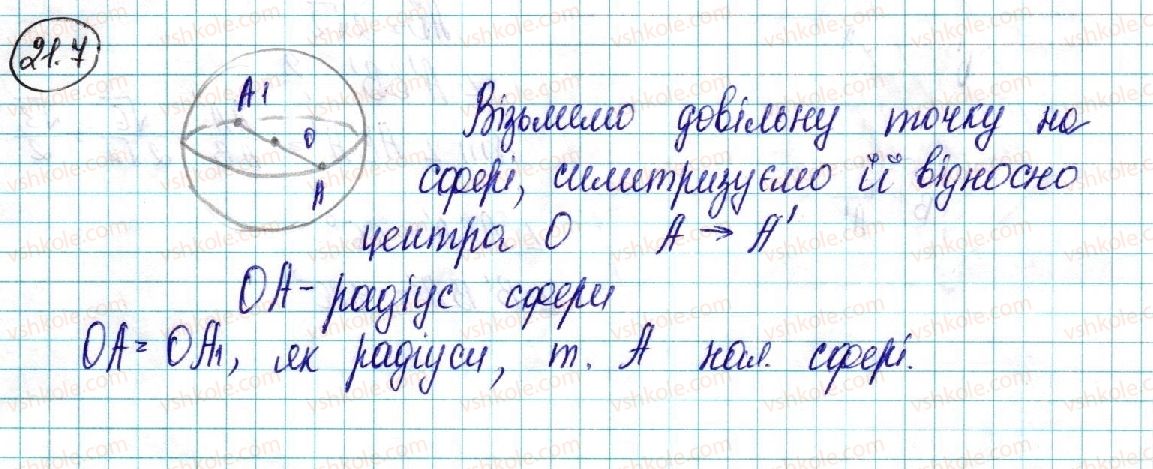 21.7
A1
O
A
Візьмемо довільну точку на
сфері, симетризуємо її відносно
центра O A → A'
OA - радіус сфери
OA = OA1, як радіуси, т. A нал. сфері.